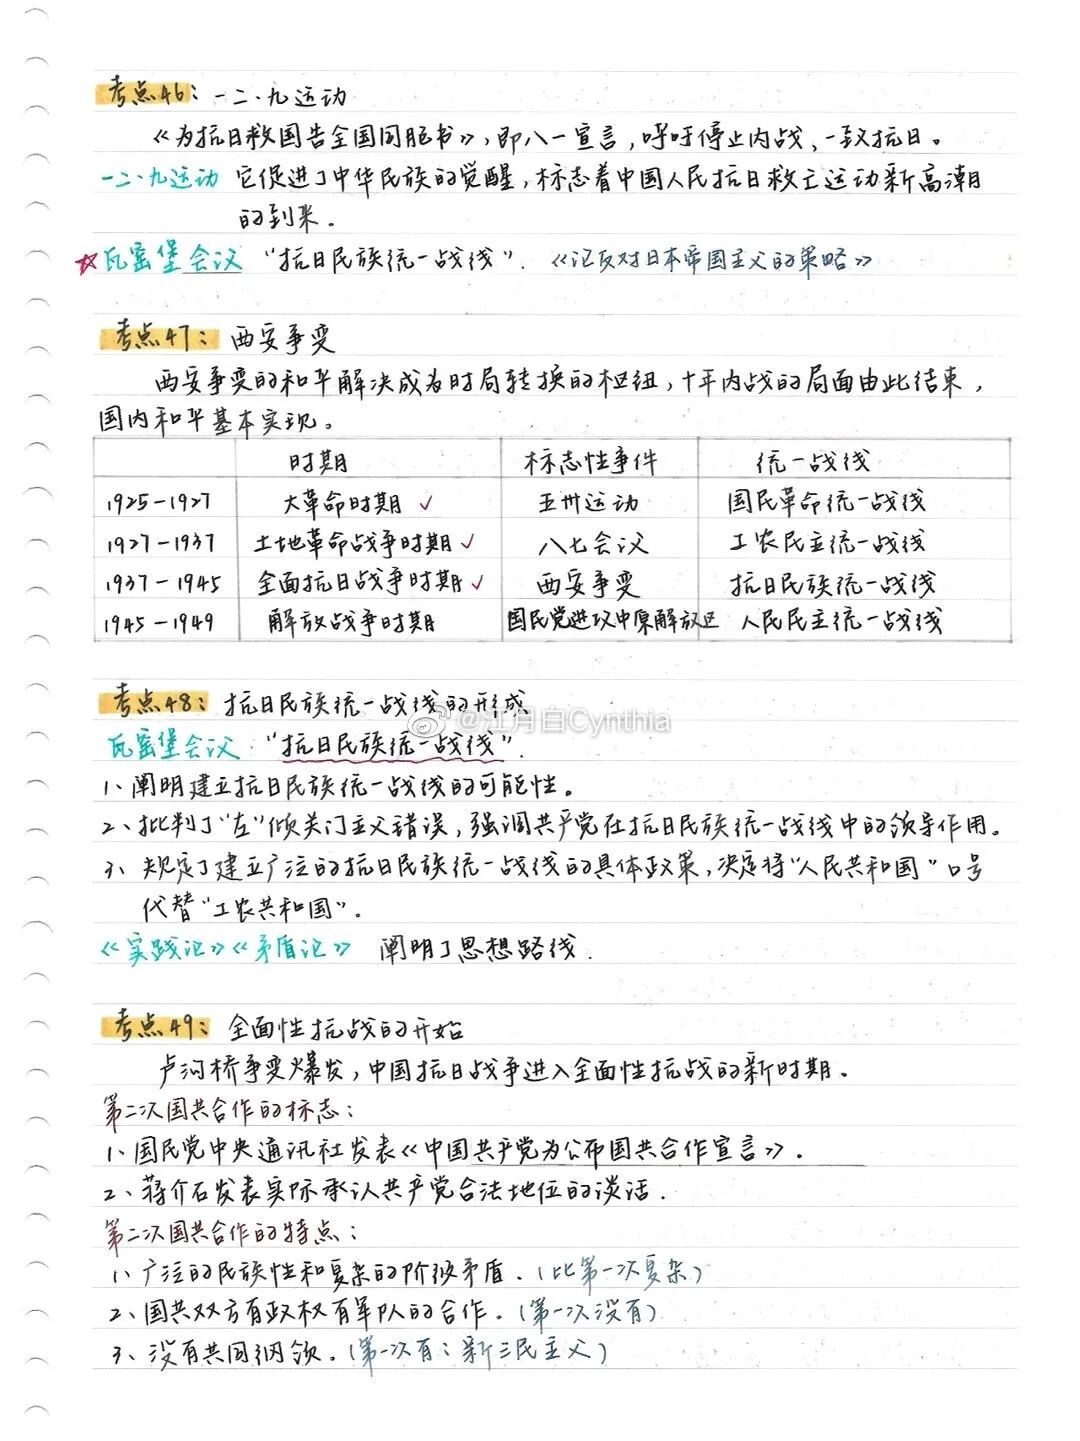 考点46：一二·九运动
《为抗日救国告全国同胞书》，即八一宣言，呼吁停止内战、一致抗日。
一二·九运动 它促进了中华民族的觉醒，标志着中国人民抗日救亡运动新高潮
的到来．
☆瓦窑堡会议 "抗日民族统一战线"．《论反对日本帝国主义的策略》
考点47：西安事变
西安事变的和平解决成为时局转换的枢纽，十年内战的局面由此结束，
国内和平基本实现。
时期 标志性事件 统一战线
1925-1927 大革命时期 ✓ 五卅运动 国民革命统一战线
1927-1937 土地革命战争时期 ✓ 八七会议 工农民主统一战线
1937-1945 全面抗日战争时期 ✓ 西安事变 抗日民族统一战线
1945-1949 解放战争时期 国民党进攻中原解放区 人民民主统一战线
考点48：抗日民族统一战线的形成
@江月白Cynthia
瓦窑堡会议 "抗日民族统一战线"．
1、阐明建立抗日民族统一战线的可能性。
2、批判了"左"倾关门主义错误，强调共产党在抗日民族统一战线中的领导作用。
3、规定了建立广泛的抗日民族统一战线的具体政策，决定将"人民共和国"口号
代替"工农共和国"．
《实践论》《矛盾论》 阐明了思想路线．
考点49：全面性抗战的开始
卢沟桥事变爆发，中国抗日战争进入全面性抗战的新时期．
第二次国共合作的标志：
1、国民党中央通讯社发表《中国共产党为公布国共合作宣言》．
2、蒋介石发表实际承认共产党合法地位的谈话．
第二次国共合作的特点：
1、广泛的民族性和复杂的阶级矛盾．（比第一次复杂）
2、国共双方有政权有军队的合作．（第一次没有）
3、没有共同纲领．（第一次有：新三民主义）